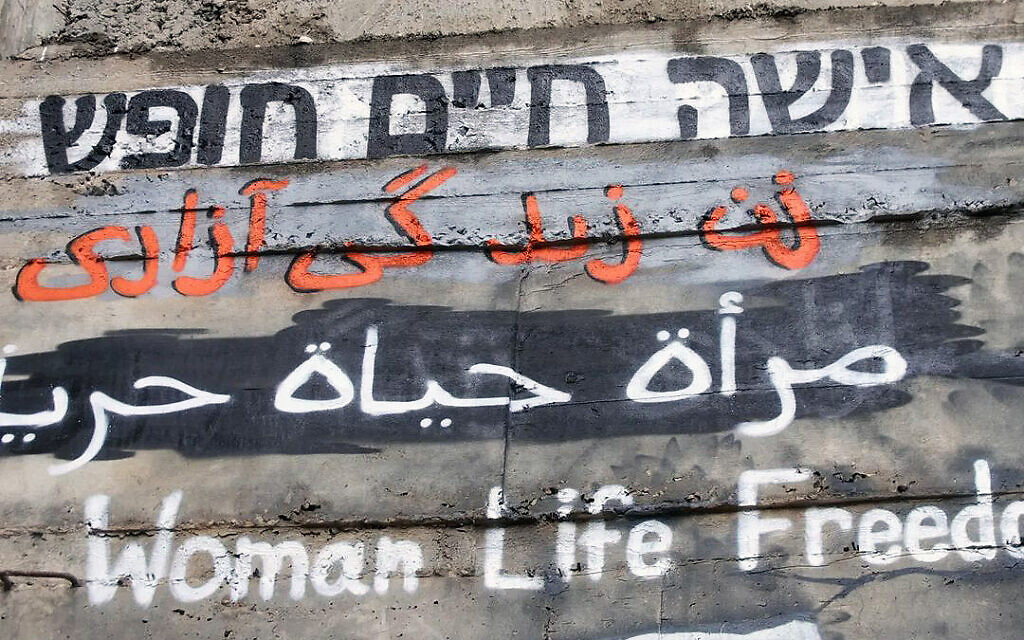 אישה חיים חופש
زن زندگی آزادی
مرأة حياة حرية
Woman Life Freedo